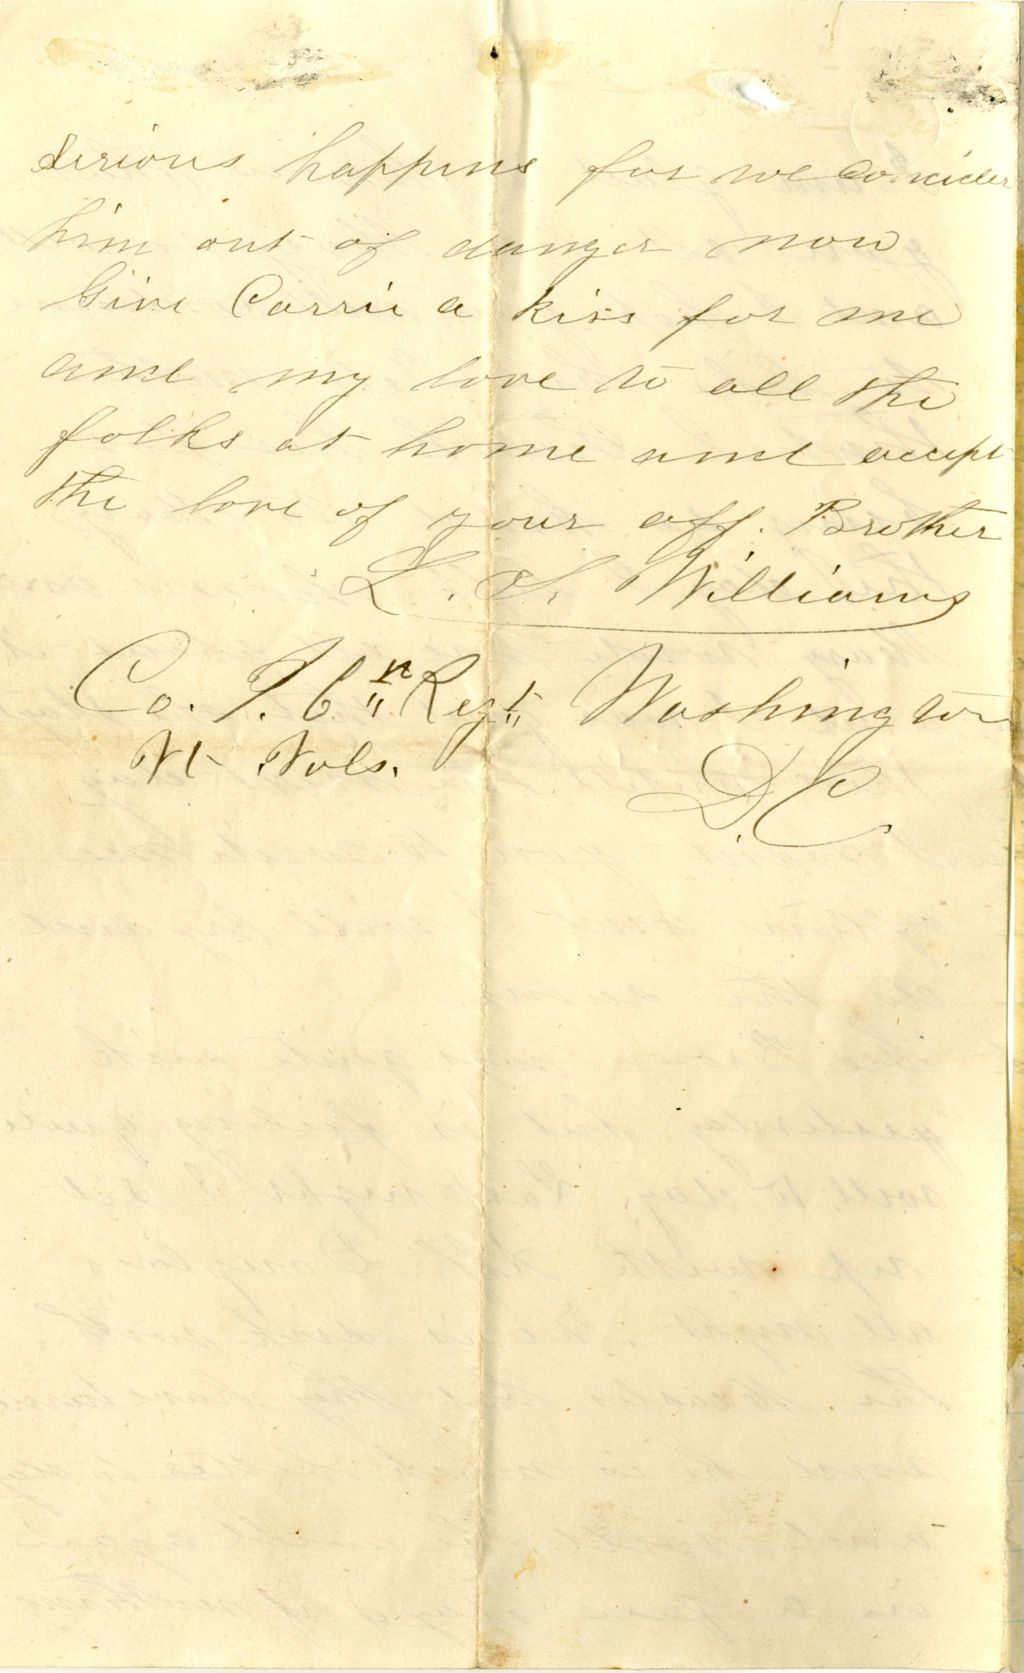 serious happens for we concider
him out of danger now
Give Carrie a kiss for me
and my love to all the
folks at home and accept
the love of your aff. Brother
L. S. Williams
Co. I. 6"th Regt Washington
Vt Vols. D.C.